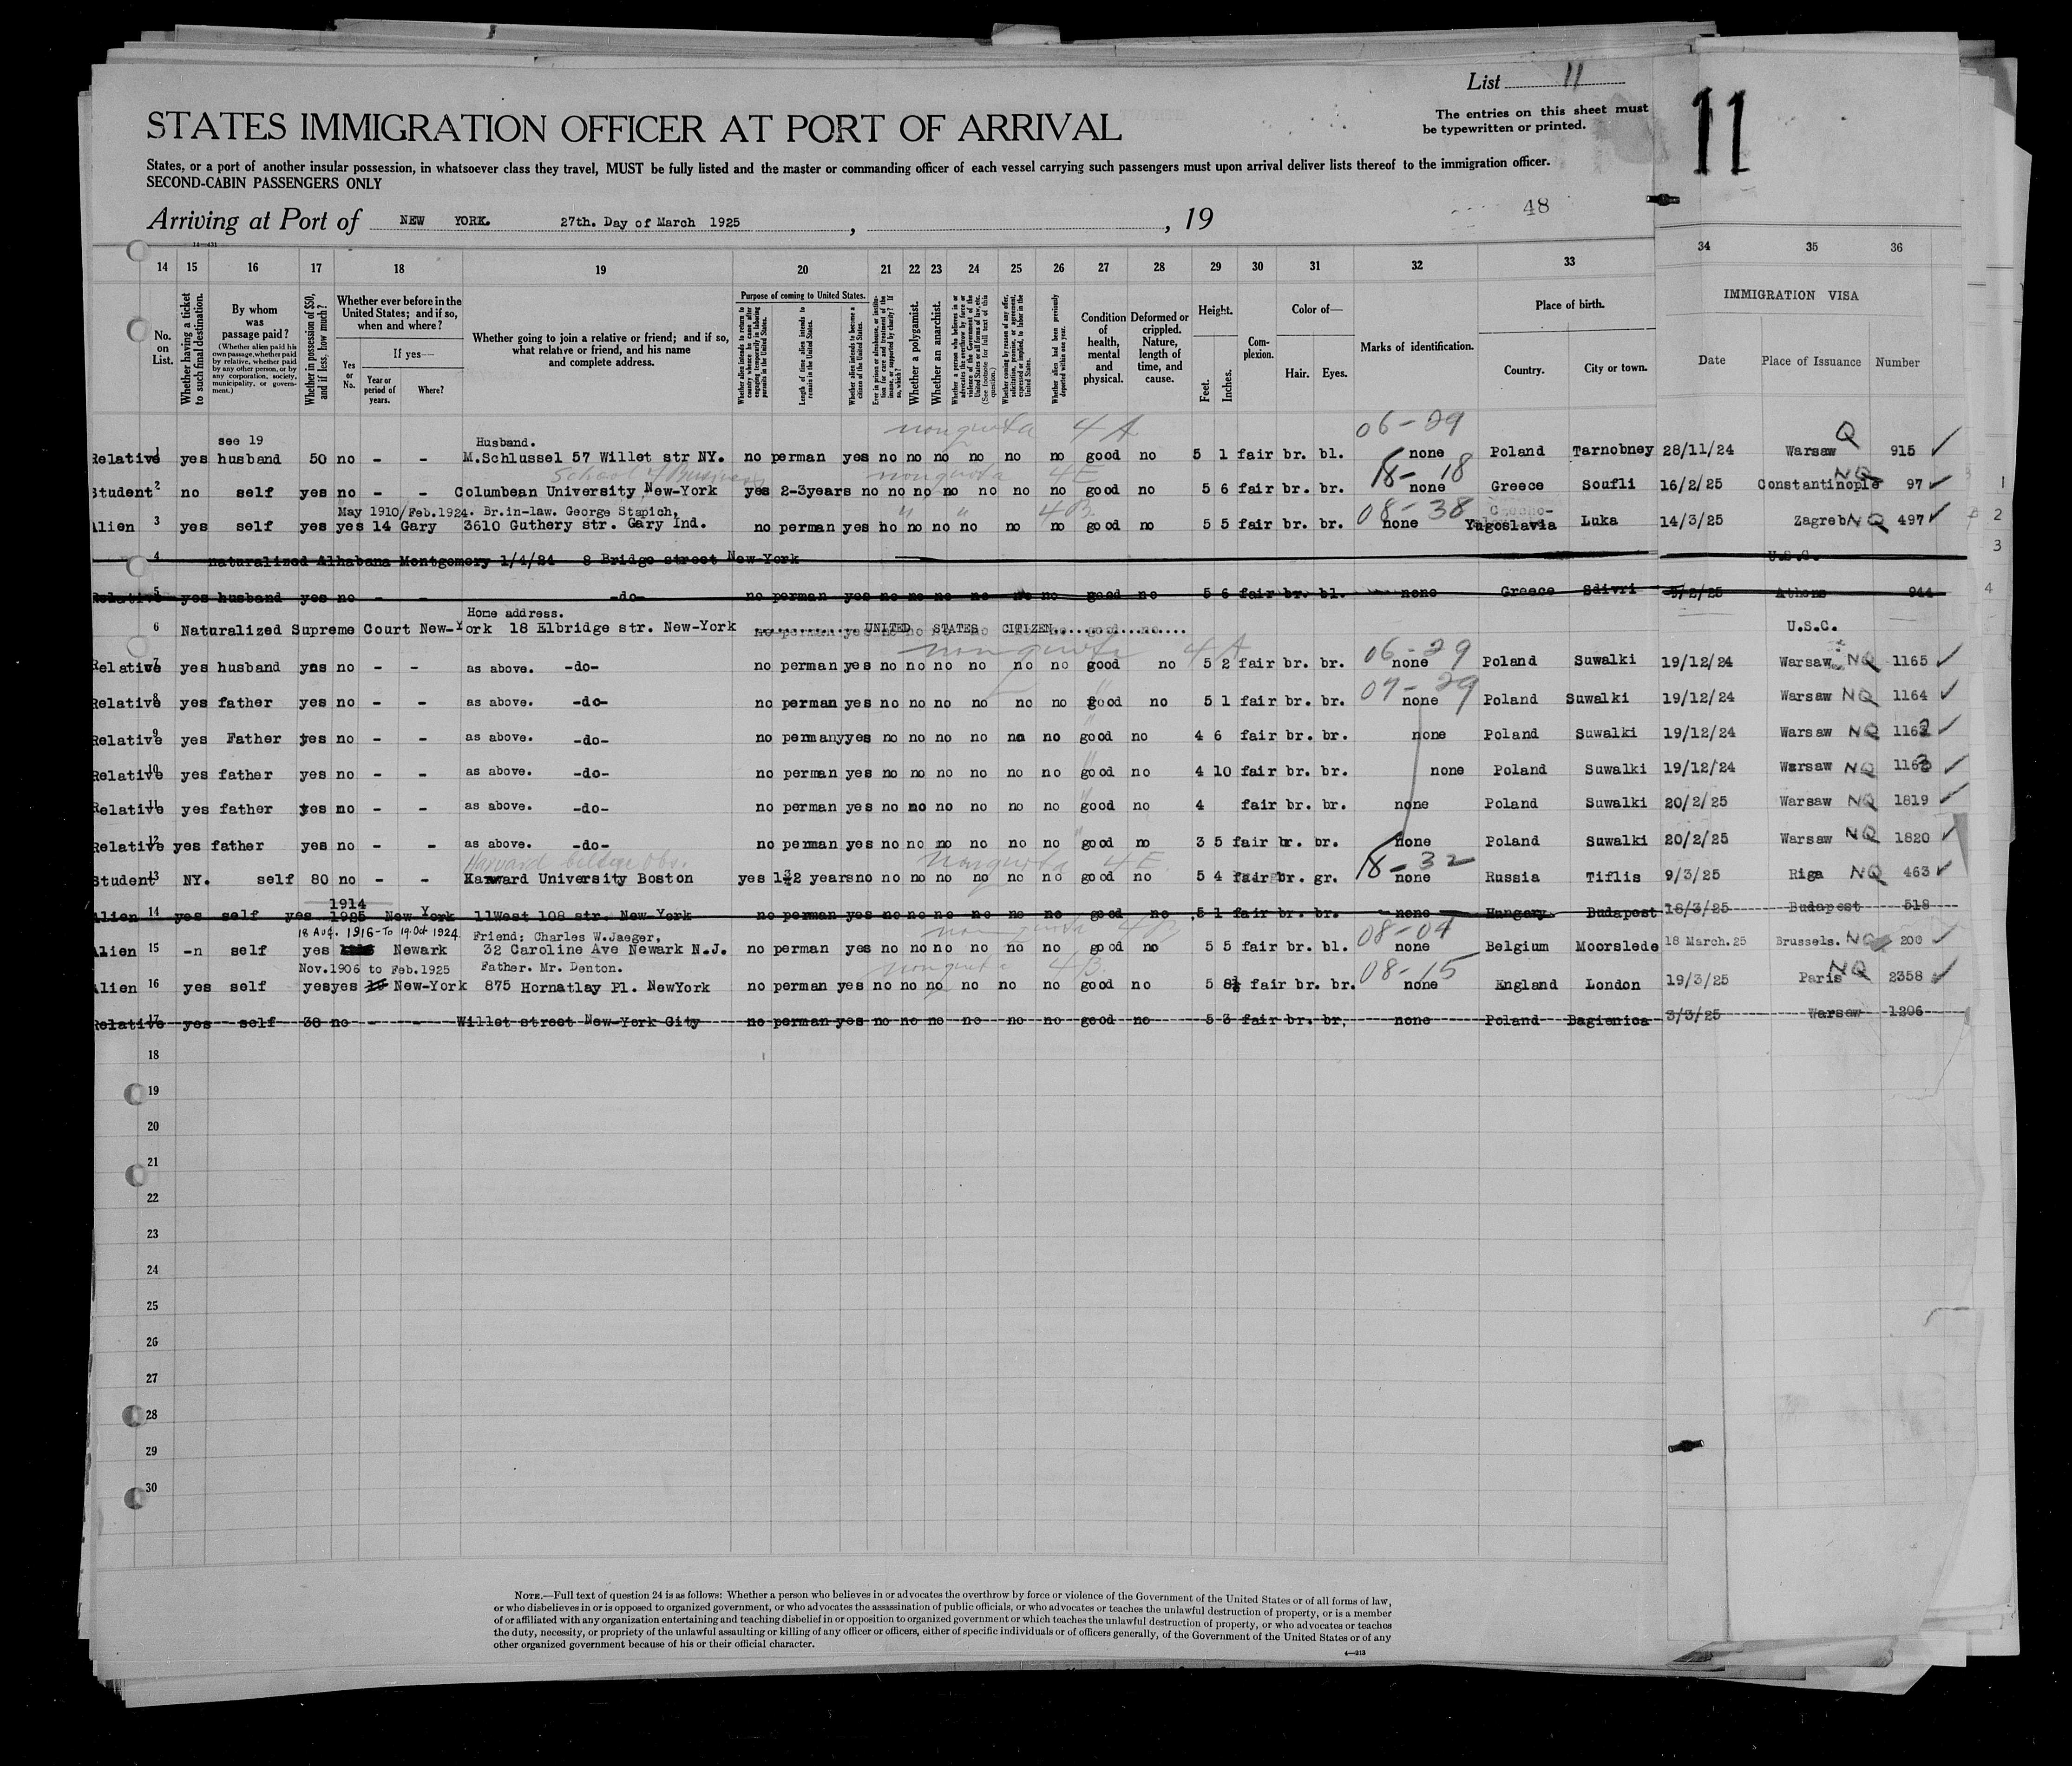 List 11
The entries on this sheet must
be typewritten or printed.
11
STATES IMMIGRATION OFFICER AT PORT OF ARRIVAL
States, or a port of another insular possession, in whatsoever class they travel, MUST be fully listed and the master or commanding officer of each vessel carrying such passengers must upon arrival deliver lists thereof to the immigration officer.
SECOND-CABIN PASSENGERS ONLY
48
Arriving at Port of NEW YORK. 27th. Day of March 1925 , , 19
14—431
14 15 16 17 18 19 20 21 22 23 24 25 26 27 28 29 30 31 32 33 34 35 36
No. on List.
Whether having a ticket to such final destination.
By whom was passage paid?
(Whether alien paid his own passage, whether paid by relative, whether paid by any other person, or by any corporation, society, municipality, or government.)
Whether in possession of $50, and if less, how much?
Whether ever before in the United States; and if so, when and where?
Yes or No.
If yes—
Year or period of years.
Where?
Whether going to join a relative or friend; and if so, what relative or friend, and his name and complete address.
Purpose of coming to United States.
Whether alien intends to return to country whence he came after engaging temporarily in laboring pursuits in the United States.
Length of time alien intends to remain in the United States.
Whether alien intends to become a citizen of the United States.
Ever in prison or almshouse, or institution for care and treatment of the insane, or supported by charity? If so, which?
Whether a polygamist.
Whether an anarchist.
Whether coming by reason of any offer, solicitation, promise, or agreement, expressed or implied, to labor in the United States.
Whether alien had been previously deported within one year.
Condition of health, mental and physical.
Deformed or crippled. Nature, length of time, and cause.
Height.
Feet.
Inches.
Complexion.
Color of—
Hair.
Eyes.
Marks of identification.
Place of birth.
Country.
City or town.
IMMIGRATION VISA
Date
Place of Issuance
Number
see 19 Husband. nonquota 4A 06-29 Q
Relative 1 yes husband 50 no - - M.Schlussel 57 Willet str NY. no perman yes no no no no no no good no 5 1 fair br. bl. none Poland Tarnobney 28/11/24 Warsaw 915
School of Business nonquota 4E 18-18 NQ
Student 2 no self yes no - - Columbean University New-York yes 2-3years no no no no no no no good no 5 6 fair br. br. none Greece Soufli 16/2/25 Constantinople 97 1
May 1910/Feb.1924. Br.in-law. George Stapich, " " 4B. 08-38
Alien 3 yes self yes yes 14 Gary 3610 Guthery str. Gary Ind. no perman yes no no no no no no good no 5 5 fair br. br. none Yugoslavia Luka 14/3/25 Zagreb NQ 497 2
4 naturalized Alhabana Montgomery 1/4/24 8 Bridge street New-York U.S.C. 3
Relative 5 yes husband yes no - - -do- no perman yes no no no no no no good no 5 6 fair br. bl. none Greece Sdivri 5/2/25 Athens 944 4
Home address.
6 Naturalized Supreme Court New-York 18 Elbridge str. New-York UNITED STATES CITIZEN U.S.C.
nonquota 4A 06-29
Relative 7 yes husband yes no - - as above. -do- no perman yes no no no no no no good no 5 2 fair br. br. none Poland Suwalki 19/12/24 Warsaw NQ 1165
07-29
Relative 8 yes father yes no - - as above. -do- no perman yes no no no no no no good no 5 1 fair br. br. none Poland Suwalki 19/12/24 Warsaw NQ 1164
Relative 9 yes Father yes no - - as above. -do- no permanyyes no no no no no no good no 4 6 fair br. br. none Poland Suwalki 19/12/24 Warsaw NQ 1162
Relative 10 yes father yes no - - as above. -do- no perman yes no no no no no no good no 4 10 fair br. br. none Poland Suwalki 19/12/24 Warsaw NQ 1163
Relative 11 yes father yes no - - as above. -do- no perman yes no no no no no no good no 4 fair br. br. none Poland Suwalki 20/2/25 Warsaw NQ 1819
Relative 12 yes father yes no - - as above. -do- no perman yes no no no no no no good no 3 5 fair br. br. none Poland Suwalki 20/2/25 Warsaw NQ 1820
Harvard College Obs. nonquota 4E 18-32
Student 13 NY. self 80 no - - Harward University Boston yes 1½2 years no no no no no no no good no 5 4 fair br. gr. none Russia Tiflis 9/3/25 Riga NQ 463
1914
Alien 14 yes self yes 1925 New York 11West 108 str. New-York no perman yes no no no no no no good no 5 1 fair br. br. none Hungery Budapest 18/3/25 Budapest 518
18 Aug. 1916-To 19 Oct 1924 Friend; Charles W.Jaeger, nonquota 4B 08-04
Alien 15 -n self yes Newark 32 Caroline Ave Newark N.J. no perman yes no no no no no no good no 5 5 fair br. bl. none Belgium Moorslede 18 March.25 Brussels. NQ 200
Nov.1906 to Feb.1925 Father. Mr. Denton. nonquota 4B. 08-15 NQ
Alien 16 yes self yesyes New-York 875 Hornatlay Pl. NewYork no perman yes no no no no no no good no 5 8½ fair br. br. none England London 19/3/25 Paris 2358
Relative 17 yes self 30 no - - Willet street New-York City no perman yes no no no no no no good no 5 3 fair br. br, none Poland Bagienica 3/3/25 Warsaw 1206
18
19
20
21
22
23
24
25
26
27
28
29
30
NOTE.—Full text of question 24 is as follows: Whether a person who believes in or advocates the overthrow by force or violence of the Government of the United States or of all forms of law,
or who disbelieves in or is opposed to organized government, or who advocates the assassination of public officials, or who advocates or teaches the unlawful destruction of property, or is a member
of or affiliated with any organization entertaining and teaching disbelief in or opposition to organized government or which teaches the unlawful destruction of property, or who advocates or teaches
the duty, necessity, or propriety of the unlawful assaulting or killing of any officer or officers, either of specific individuals or of officers generally, of the Government of the United States or of any
other organized government because of his or their official character.
4—213